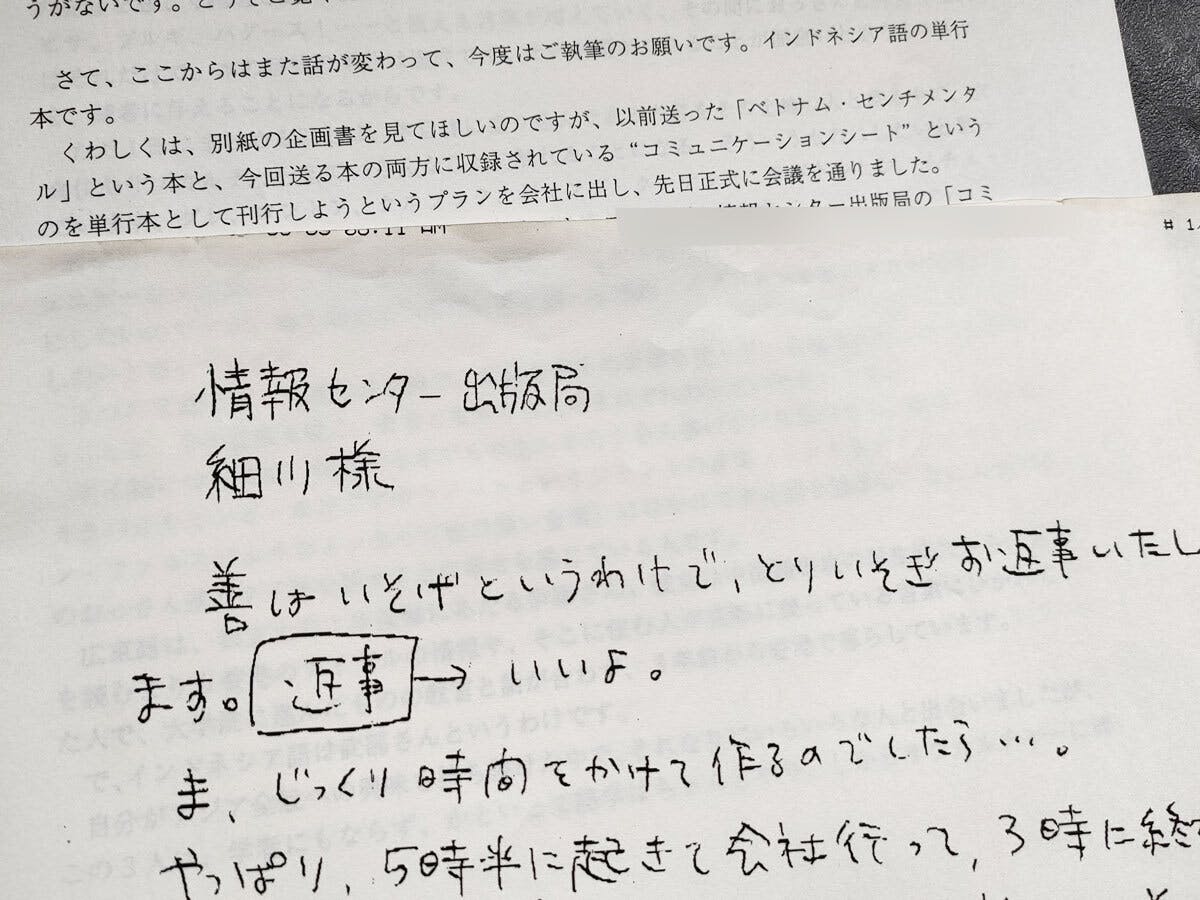 うがないです。どうぞご覧く
さて、ここからはまた話が変わって、今度はご執筆のお願いです。インドネシア語の単行
本です。
くわしくは、別紙の企画書を見てほしいのですが、以前送った「ベトナム・センチメンタ
ル」という本と、今回送る本の両方に収録されている“コミュニケーションシート”という
のを単行本として刊行しようというプランを会社に出し、先日正式に会議を通りました。
情報センター出版局の「コミ
# 1
情報センター出版局
細川様
善はいそげというわけで、とりいそぎお返事いたし
ます。返事→いいよ。
ま、じっくり時間をかけて作るのでしたら…。
やっぱり、5時半に起きて会社行って、3時に終